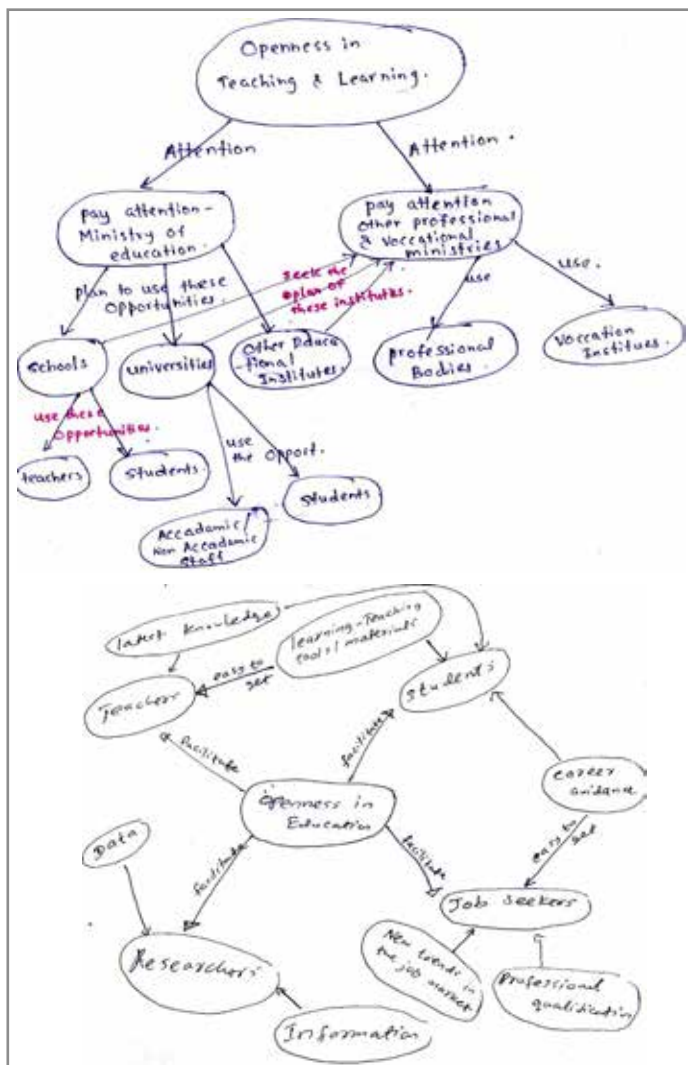 Openness in
Teaching & Learning.
Attention
Attention.
pay attention -
Ministry of
education.
pay attention
Other professional
& Voccational
ministries
Plan to use these
Opportunities.
Seek the
plan of
these institutes.
use
use.
Schools
Universities
Other Educa
-tional
Institutes.
Professional
Bodies.
Voccation
Institues.
Use these
Opportunities.
use
the Opport.
teachers
Students.
Students
Accadamic/
Non Accadamic
Staff
latest knowledge
learning-Teaching
tools/materials
easy to
get
Teachers
Students
facilitate
facilitate
career
guidance
Openness in
Education
Data
easy to
get
facilitate
facilitate
Job seekers
Researchers
New trends in
the job
market
Professional
qualification
Information